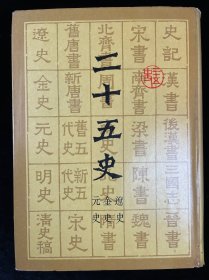 史記
漢書
後漢書
三國志
晉書
宋書
南齊書
梁書
陳書
魏書
北齊書
周書
史
史
隋書
舊唐書
新唐書
舊五代史
新五代史
宋史
遼史
金史
元史
明史
清史稿
二十五史
遼史
金史
元史